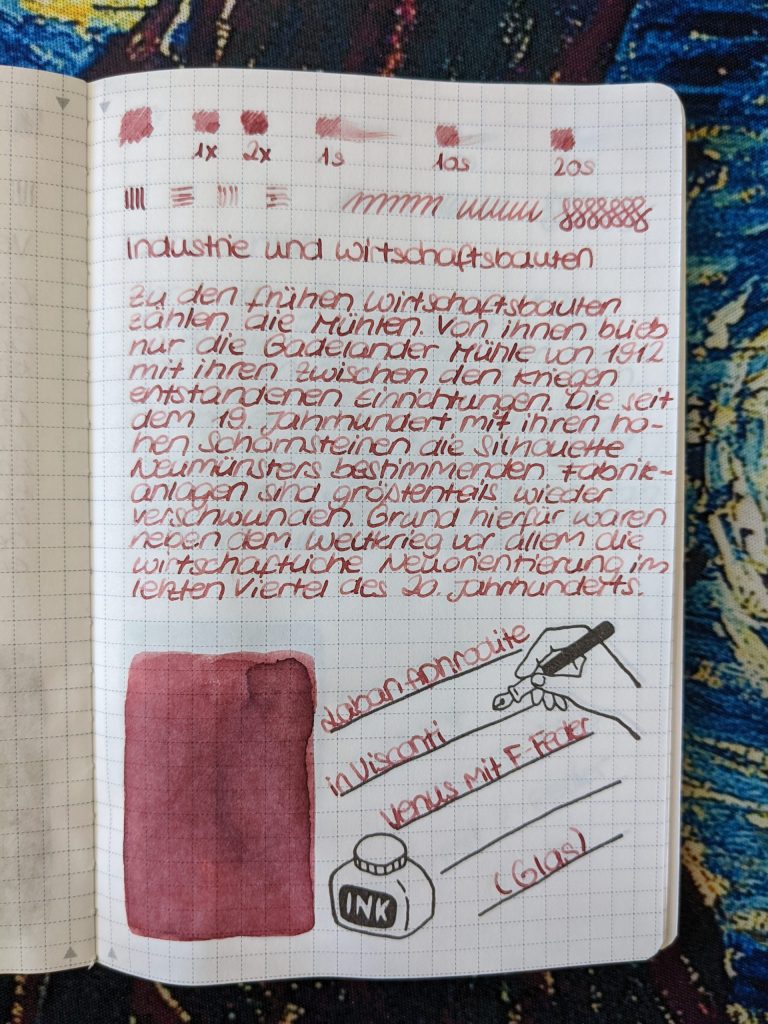 1x 2x 1s 10s 20s
Industrie und Wirtschaftsbauten
Zu den frühen Wirtschaftsbauten
zählen die Mühlen. Von ihnen blieb
nur die Gadelander Mühle von 1912
mit ihren zwischen den Kriegen
entstandenen Einrichtungen. Die seit
dem 19. Jahrhundert mit ihren ho-
hen Schornsteinen die Silhouette
Neumünsters bestimmenden Fabrik-
anlagen sind größtenteils wieder
verschwunden. Grund hierfür waren
neben dem Weltkrieg vor allem die
wirtschaftliche Neuorientierung im
letzten Viertel des 20. Jahrhunderts.
Laban Aphrodite
in Visconti
Venus mit F-Feder
(Glas)
INK